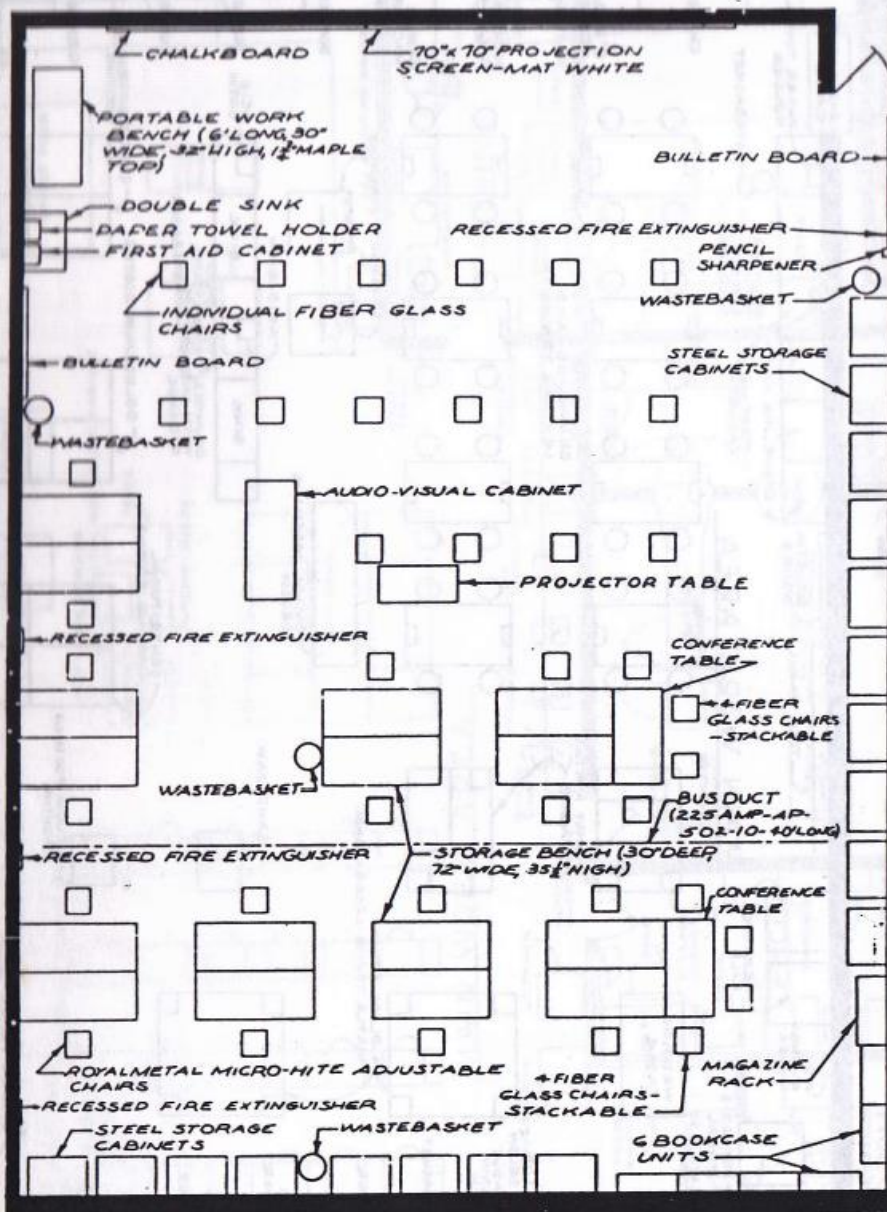 CHALKBOARD
70"x 70" PROJECTION
SCREEN-MAT WHITE
PORTABLE WORK
BENCH (6' LONG, 30"
WIDE, 32" HIGH, 1½" MAPLE
TOP)
BULLETIN BOARD
DOUBLE SINK
PAPER TOWEL HOLDER
FIRST AID CABINET
RECESSED FIRE EXTINGUISHER
PENCIL
SHARPENER
WASTEBASKET
INDIVIDUAL FIBER GLASS
CHAIRS
STEEL STORAGE
CABINETS
BULLETIN BOARD
WASTEBASKET
AUDIO-VISUAL CABINET
PROJECTOR TABLE
RECESSED FIRE EXTINGUISHER
CONFERENCE
TABLE
4-FIBER
GLASS CHAIRS
-STACKABLE
WASTEBASKET
BUS DUCT
(225 AMP-AP-
502-10-40' LONG)
RECESSED FIRE EXTINGUISHER
STORAGE BENCH (30" DEEP,
72" WIDE, 35½" HIGH)
CONFERENCE
TABLE
ROYALMETAL MICRO-HITE ADJUSTABLE
CHAIRS
4-FIBER
GLASS CHAIRS-
STACKABLE
MAGAZINE
RACK
RECESSED FIRE EXTINGUISHER
STEEL STORAGE
CABINETS
WASTEBASKET
6 BOOKCASE
UNITS